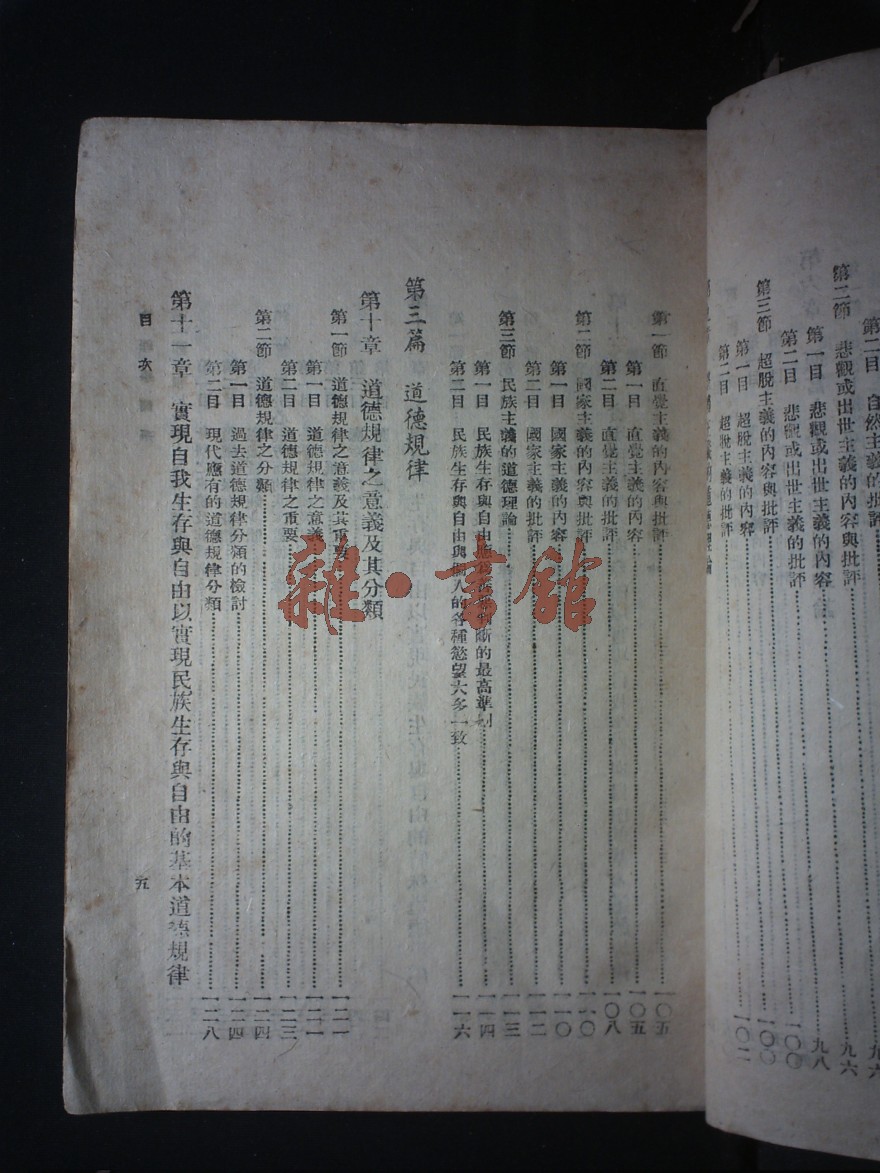 第二目 自然主義的批評 九六
第二節 悲觀或出世主義的內容與批評 九六
第一目 悲觀或出世主義的內容 九八
第二目 悲觀或出世主義的批評 一〇〇
第三節 超脫主義的內容與批評 一〇〇
第一目 超脫主義的內容
第二目 超脫主義的批評 一〇二
第一節 直覺主義的內容與批評 一〇五
第一目 直覺主義的內容 一〇五
第二目 直覺主義的批評 一〇八
第二節 國家主義的內容與批評 一一〇
第一目 國家主義的內容 一一〇
第二目 國家主義的批評 一一二
第三節 民族主義的道德理論 一一三
第一目 民族生存與自由 斷的最高準則 一一四
第二目 民族生存與自由與個人的各種慾望大多一致 一一六
第三篇 道德規律
第十章 道德規律之意義及其分類
第一節 道德規律之意義及其重要 一二一
第一目 道德規律之意義 一二一
第二目 道德規律之重要 一二三
第二節 道德規律之分類 一二四
第一目 過去道德規律分類的檢討 一二四
第二目 現代應有的道德規律分類 一二八
第十一章 實現自我生存與自由以實現民族生存與自由的基本道德規律
目次
五
雜·書館